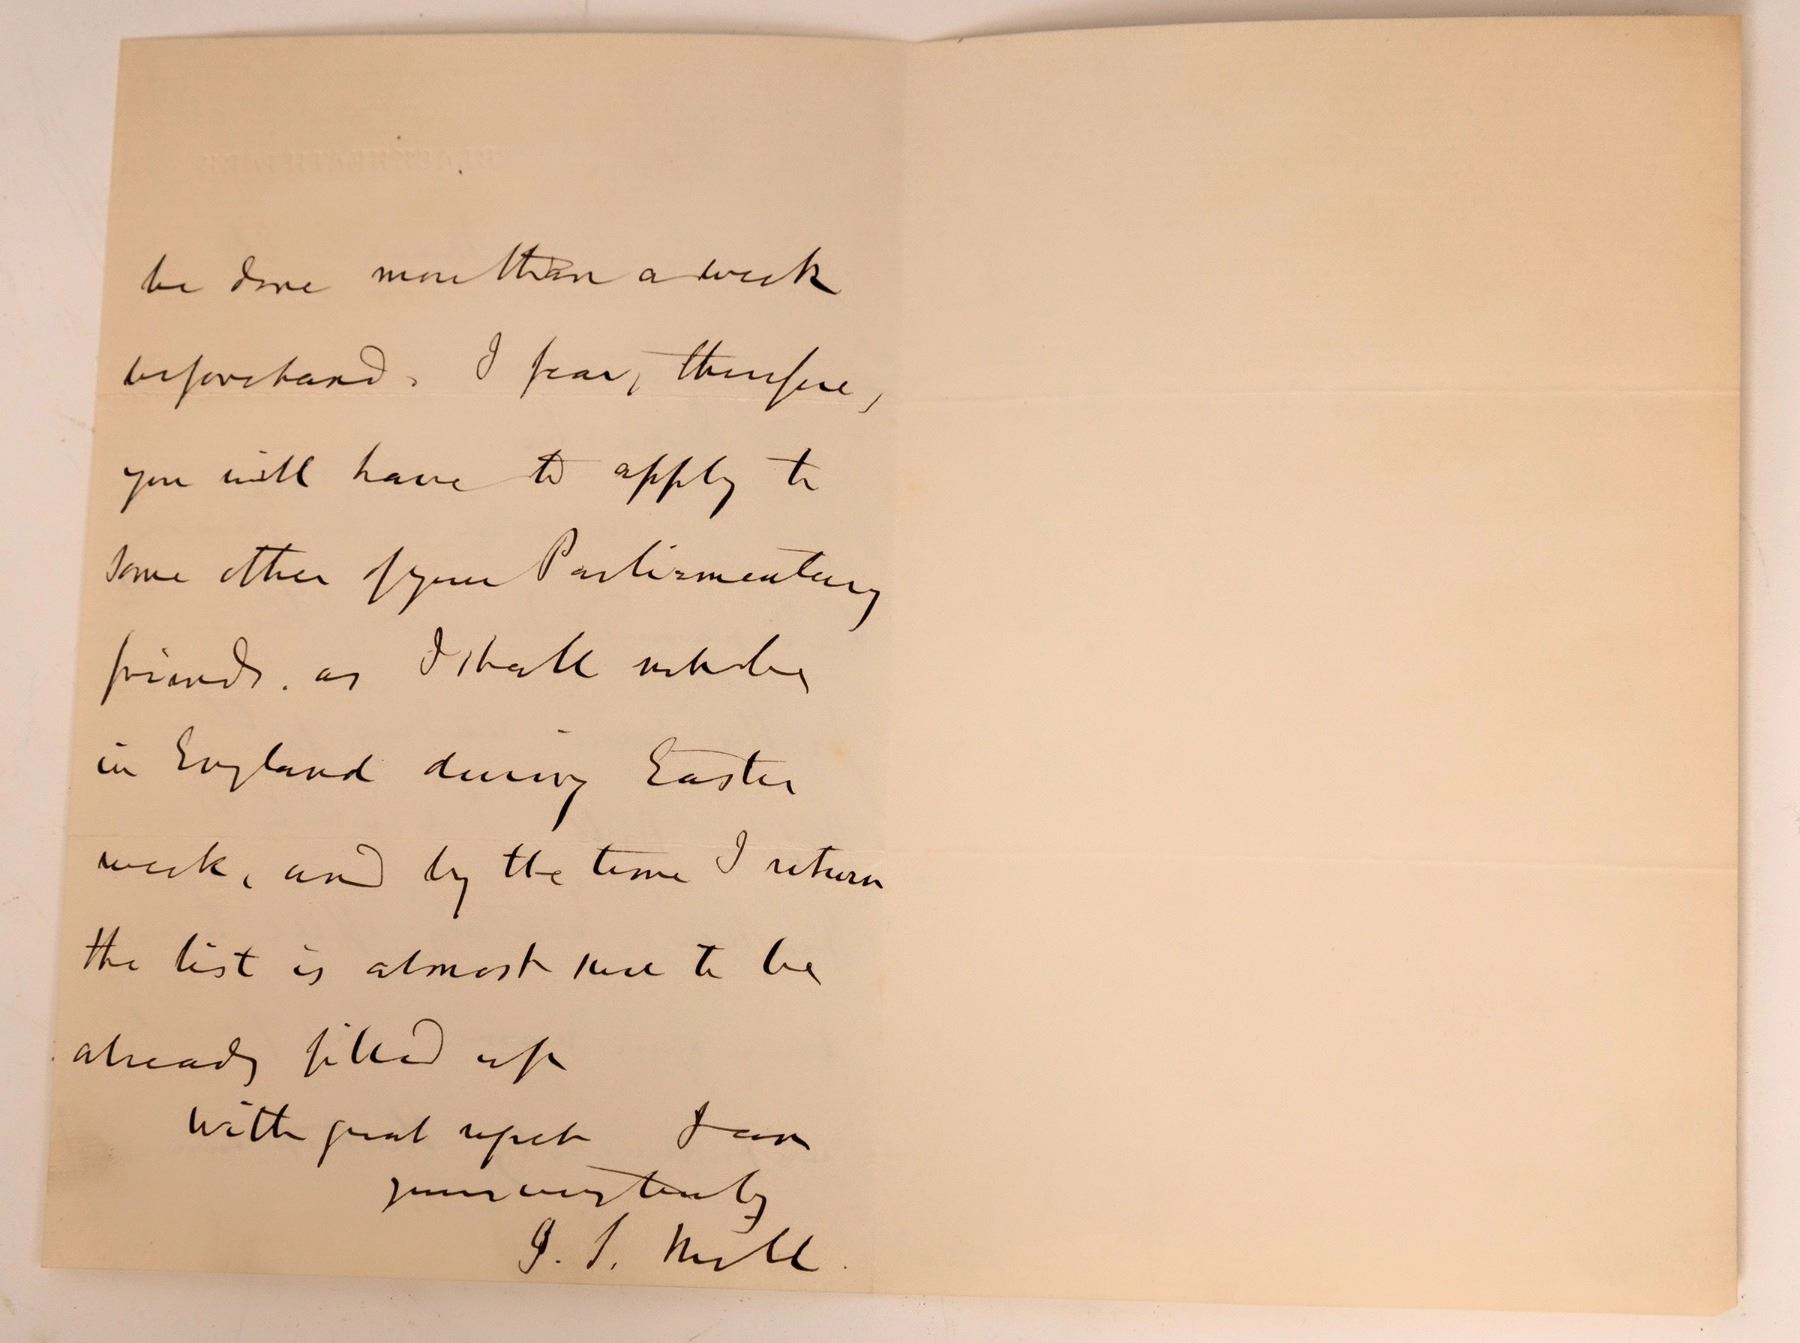 BLACKHEATH PARK
be done more than a week
beforehand. I fear, therefore,
you will have to apply to
some other of your Parliamentary
friends. as I shall not be
in England during Easter
week, and by the time I return
the list is almost sure to be
already filled up
With great respect I am
yours very truly
J. S. Mill.